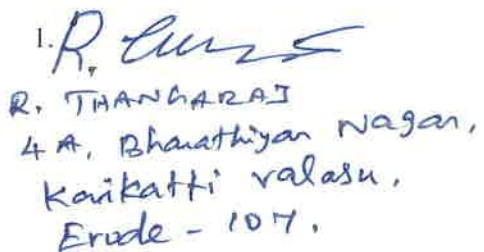 1. R.
R. THANGARAJ
4 A, Bharathiyar Nagar,
Karikatti valasu,
Erode - 107.